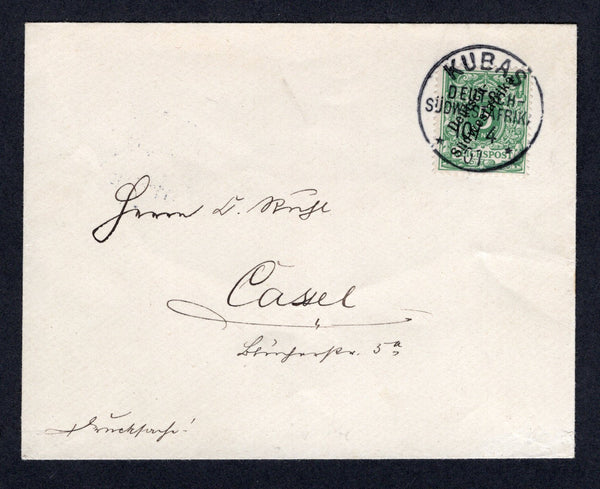 KUBAS
DEUTSCH-
SÜDWESTAFRIKA
10 4
* 01 *
Deutsch-
Südwest-Afrika
5
REICHSPOST
Herrn L. Rühl
Cassel
Blücherstr. 5a
Drucksache!